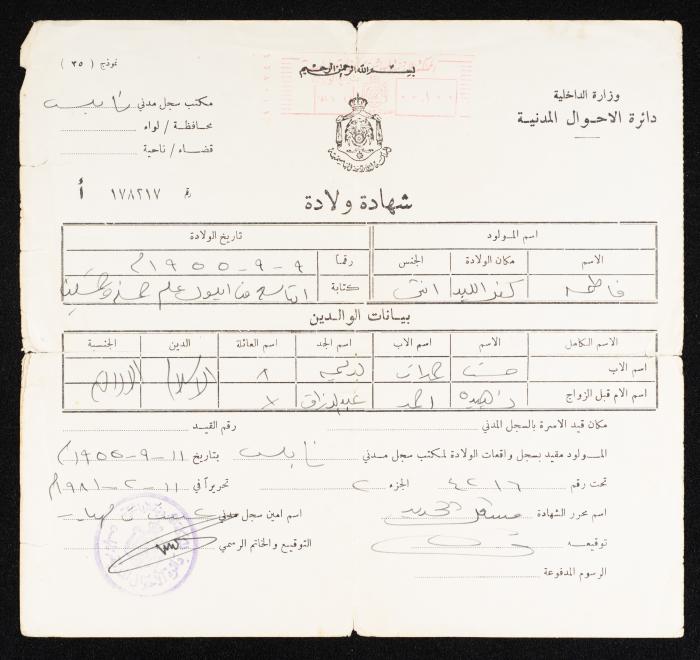 بسم الله الرحمن الرحيم
نموذج ( ٣٥ )
وزارة الداخلية
دائرة الاحوال المدنية
مكتب سجل مدني نابلس
محافظة / لواء
قضاء / ناحية
رقم ١٧٨٢١٧ أ
شهادة ولادة
اسم المولود تاريخ الولادة
الاسم مكان الولادة الجنس رقماً ٩-٩-١٩٥٥م
فاطمه انثى كتابة التاسع من ايلول عام
بيانات الوالدين
الاسم الكامل الاسم اسم الاب اسم الجد اسم العائلة الدين الجنسية
اسم الاب الاسلام
اسم الام قبل الزواج احمد عبد الرزاق
مكان قيد الاسرة بالسجل المدني رقم القيد
المولود مقيد بسجل واقعات الولادة لمكتب سجل مدني نابلس بتاريخ ١١-٩-١٩٥٥م
تحت رقم ٤٢١٦ الجزء ٢ تحريراً في ١١-٢-١٩٨١م
اسم محرر الشهادة اسم امين سجل مدني
توقيعه التوقيع والخاتم الرسمي
الرسوم المدفوعة